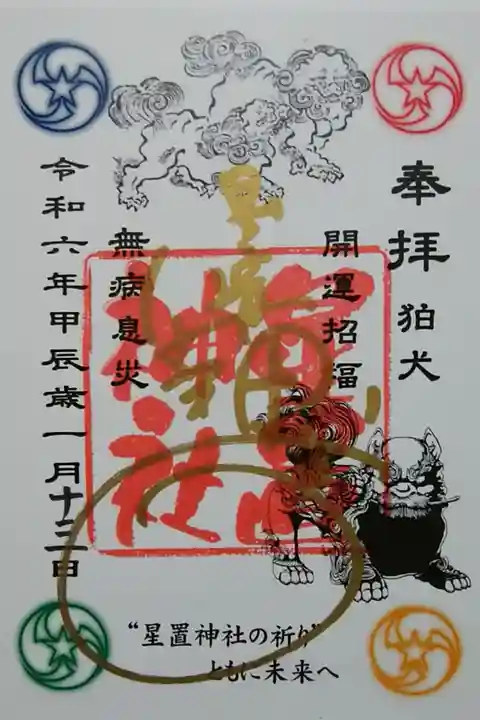 奉拝
狛犬
開運招福
星置神社
星置神社
無病息災
令和六年甲辰歳一月十三日
“星置神社の祈り”
ともに未来へ